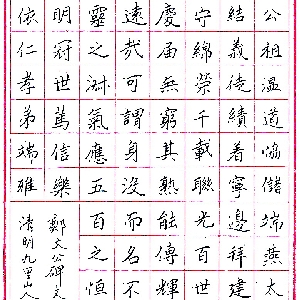 公祖溫道協儲端燕太
結義徒績着寧邊拜建
宁綿榮千載聯光百世
慶届無窮其熟能傳輝
遠哉可謂身沒而名不
靈之淑氣應五百之恒
明冠世篤信樂
依仁孝弟端雅
鄭文公碑
清明九里山人